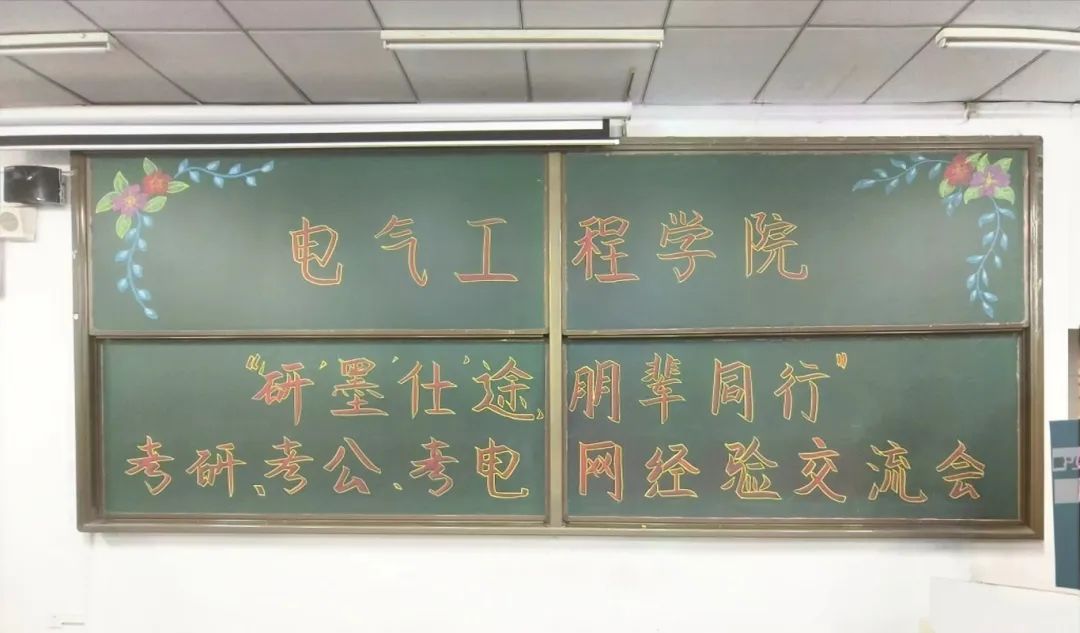 电气工程学院
“‘研’墨‘仕’途、朋辈同行”
考研、考公、考电网经验交流会